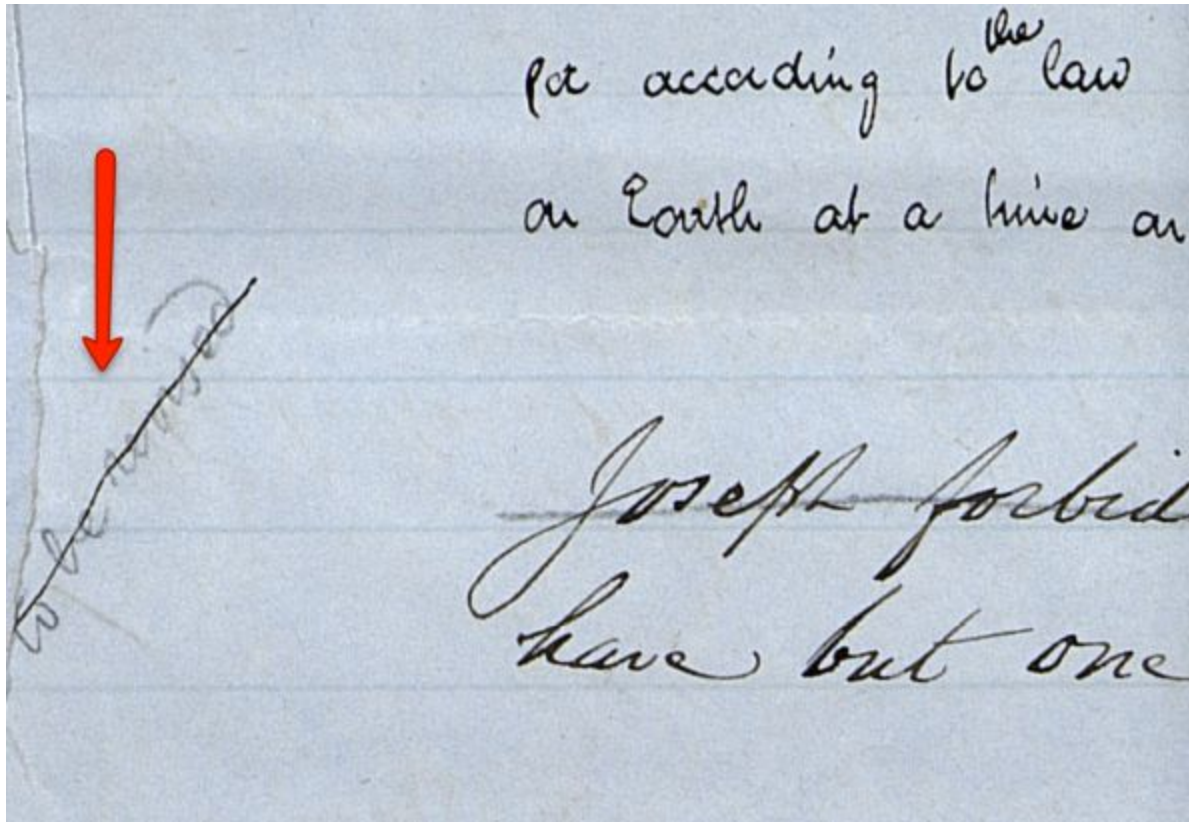 for according to the law
on Earth at a time an
to be revised
Joseph forbid
have but one